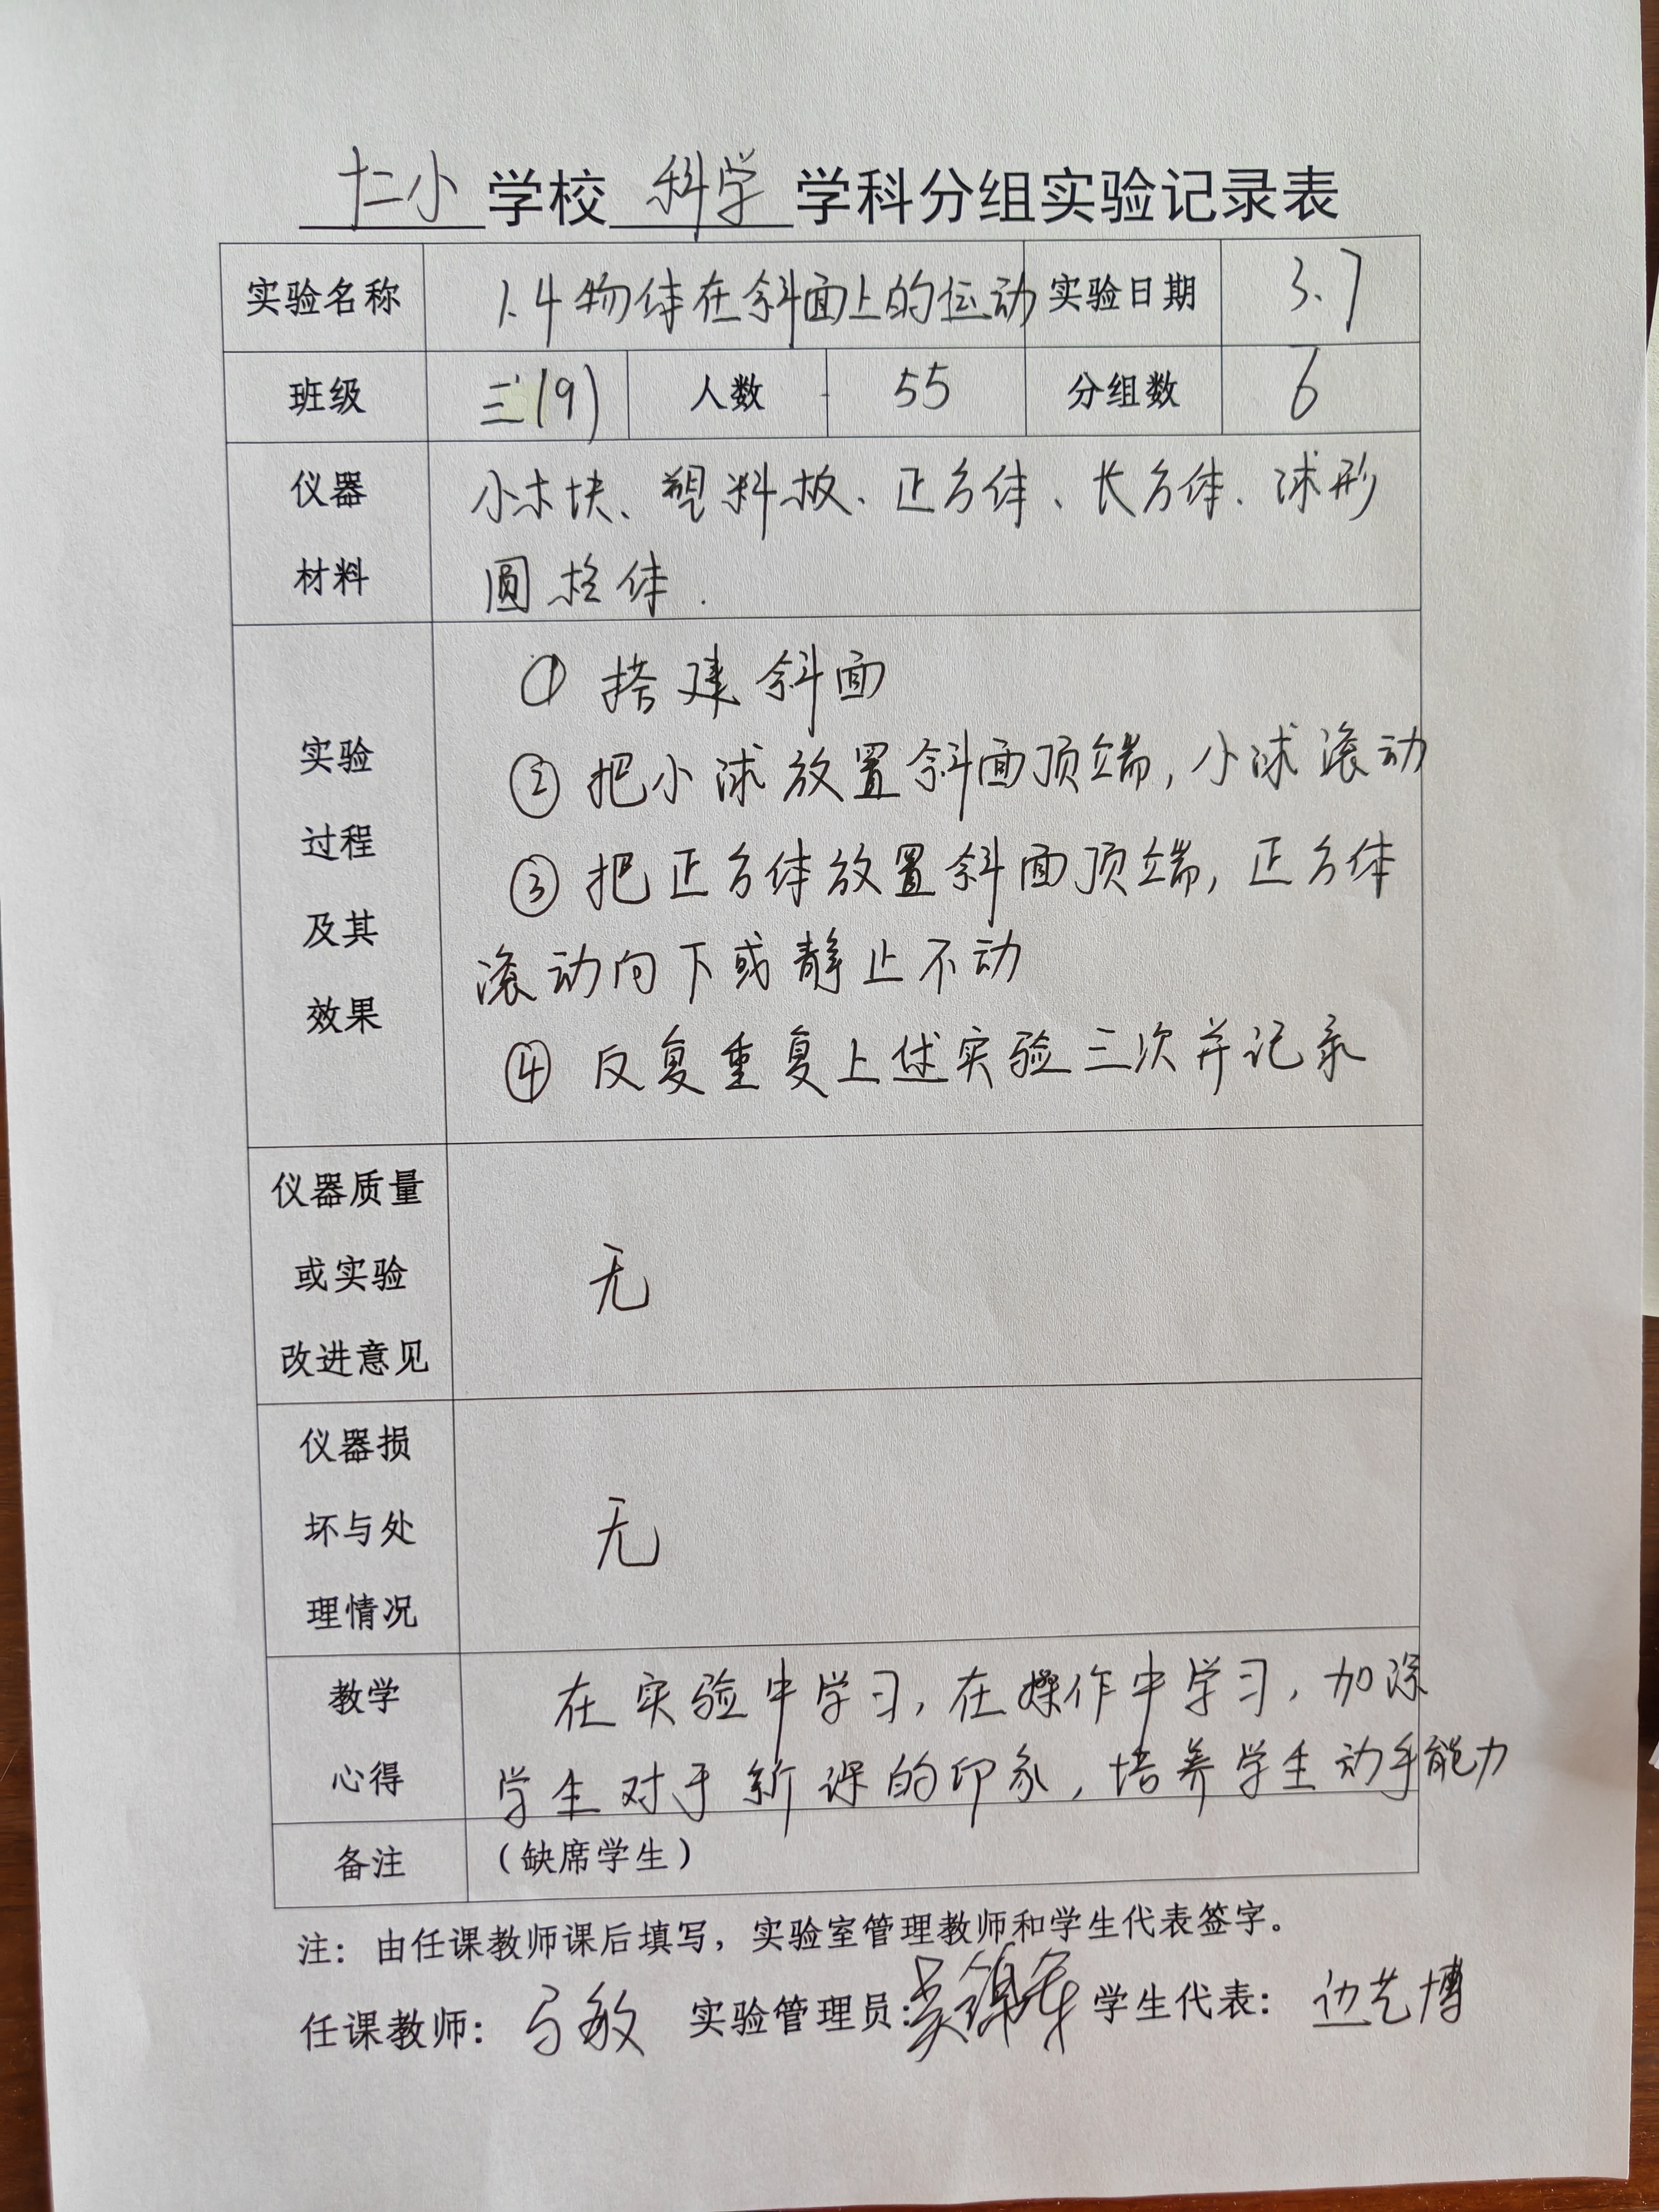 十二小 学校 科学 学科分组实验记录表
实验名称 1.4物体在斜面上的运动 实验日期 3.7
班级 三(9) 人数 55 分组数 6
仪器 小木块、塑料板、正方体、长方体、球形
材料 圆柱体.
① 搭建斜面
实验 ② 把小球放置斜面顶端,小球滚动
过程 ③ 把正方体放置斜面顶端,正方体
及其 滚动向下或静止不动
效果 ④ 反复重复上述实验三次并记录
仪器质量
或实验 无
改进意见
仪器损
坏与处 无
理情况
教学 在实验中学习,在操作中学习,加深
心得 学生对于新课的印象,培养学生动手能力
备注 (缺席学生)
注：由任课教师课后填写，实验室管理教师和学生代表签字。
任课教师：马敏 实验管理员: 学生代表：边艺博